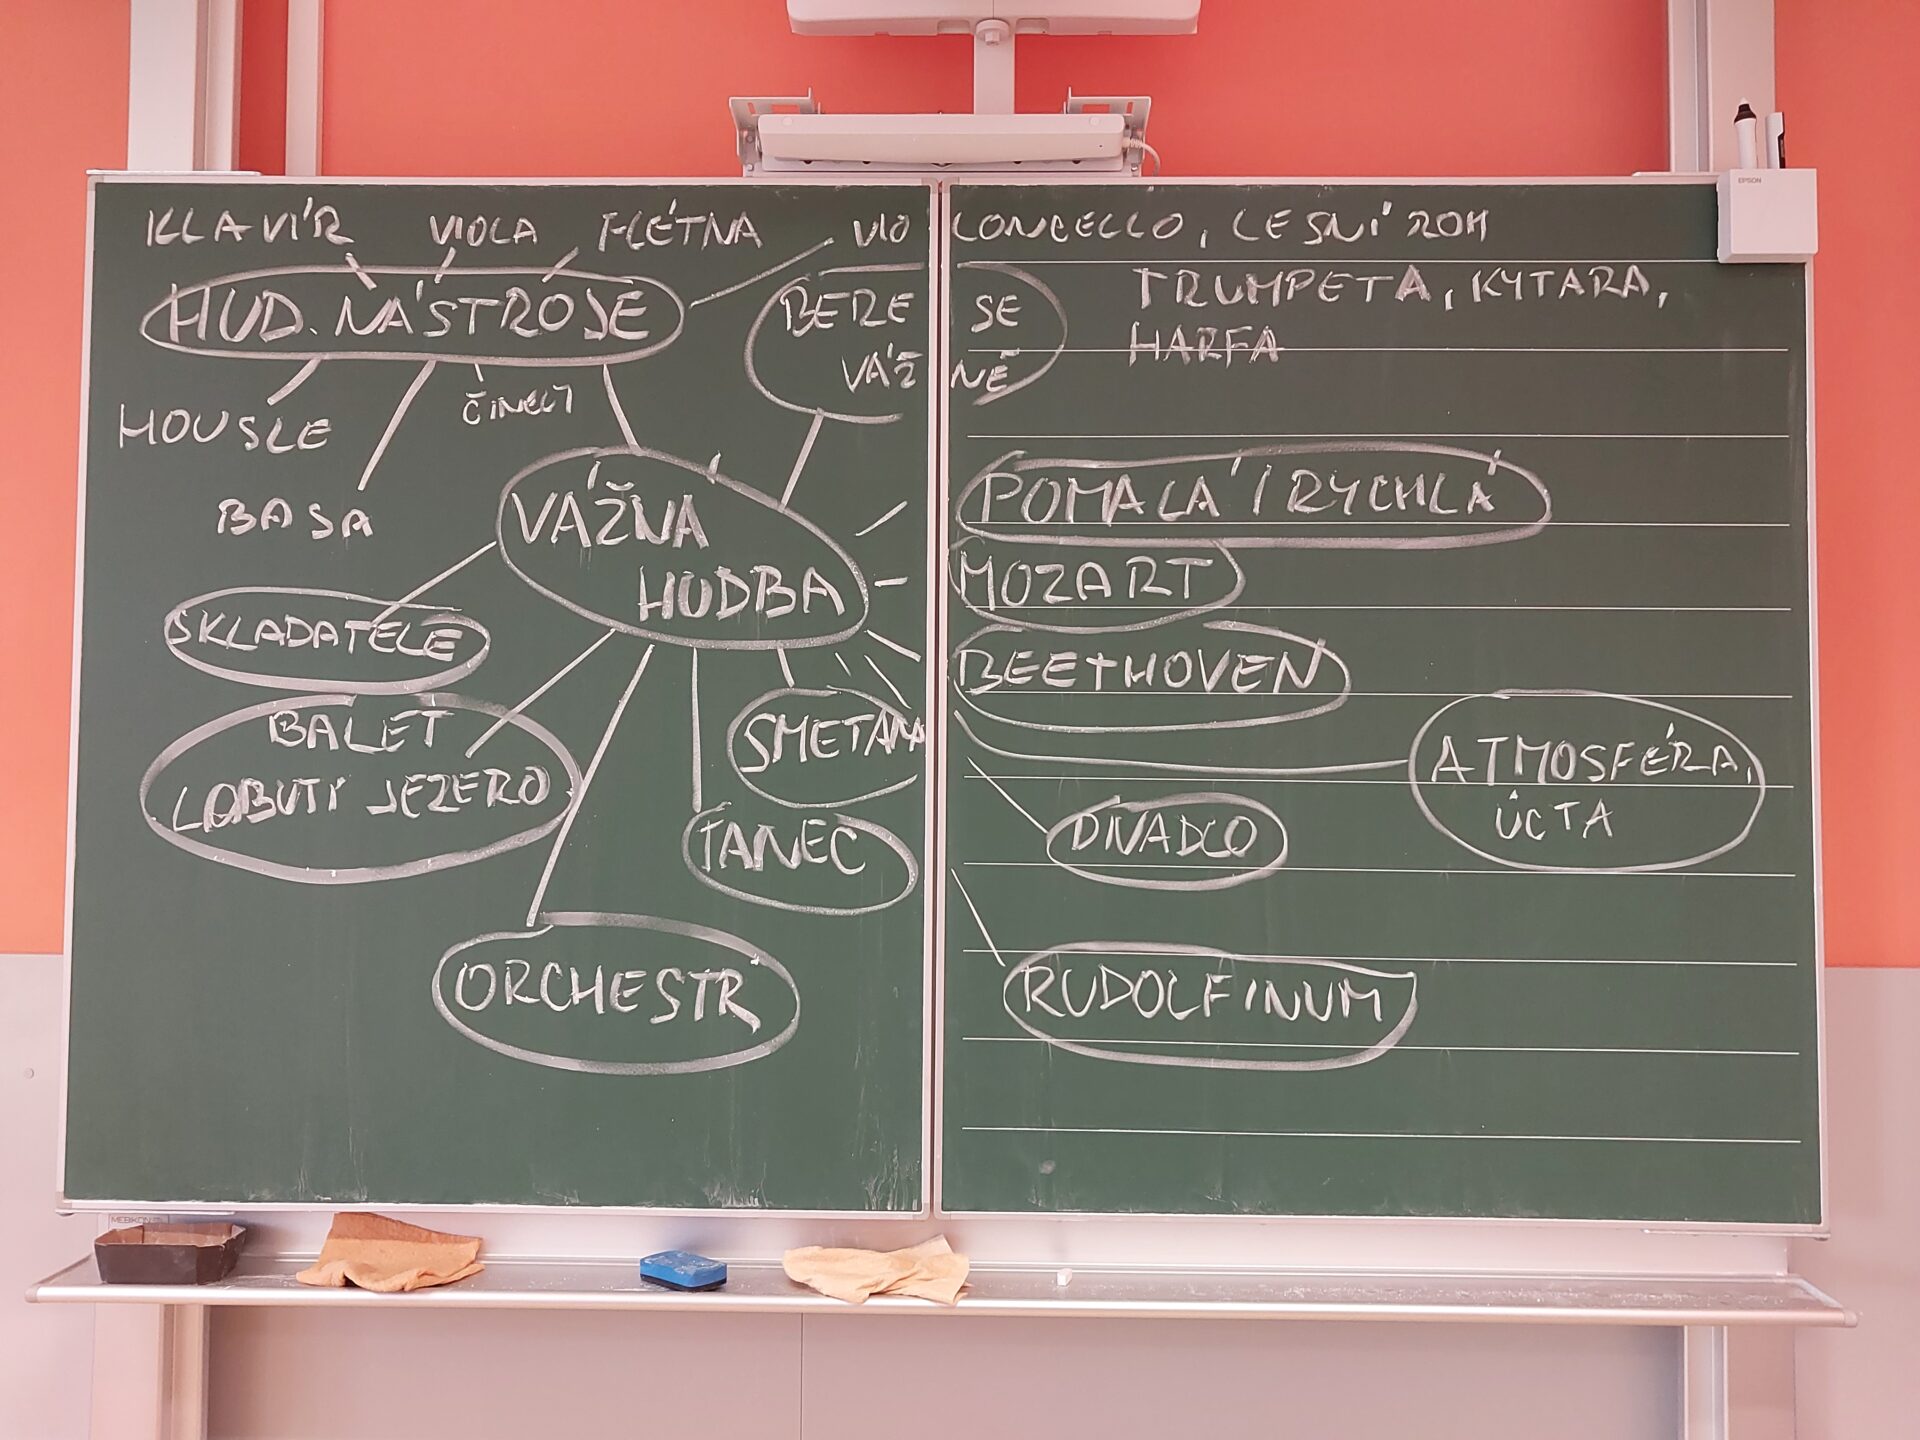 KLAVÍR VIOLA FLÉTNA VIOLONCELLO, LESNÍ ROH
HUD. NÁSTROJE
TRUMPETA, KYTARA,
HARFA
BERE SE
VÁŽNĚ
HOUSLE
ČINELY
BASA
VÁŽNÁ
HUDBA
POMALÁ / RYCHLÁ
MOZART
SKLADATELÉ
BEETHOVEN
BALET
LABUTÍ JEZERO
SMETANA
ATMOSFÉRA,
ÚCTA
TANEC
DIVADLO
ORCHESTR
RUDOLFINUM
EPSON